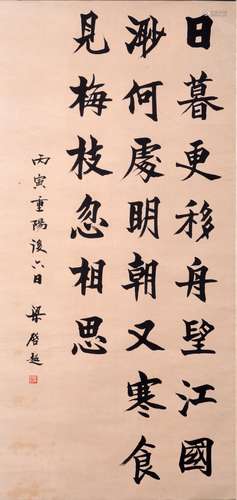 日暮更移舟望江國
渺何處明朝又寒食
見梅枝忽相思
丙寅重陽後六日 梁啓超